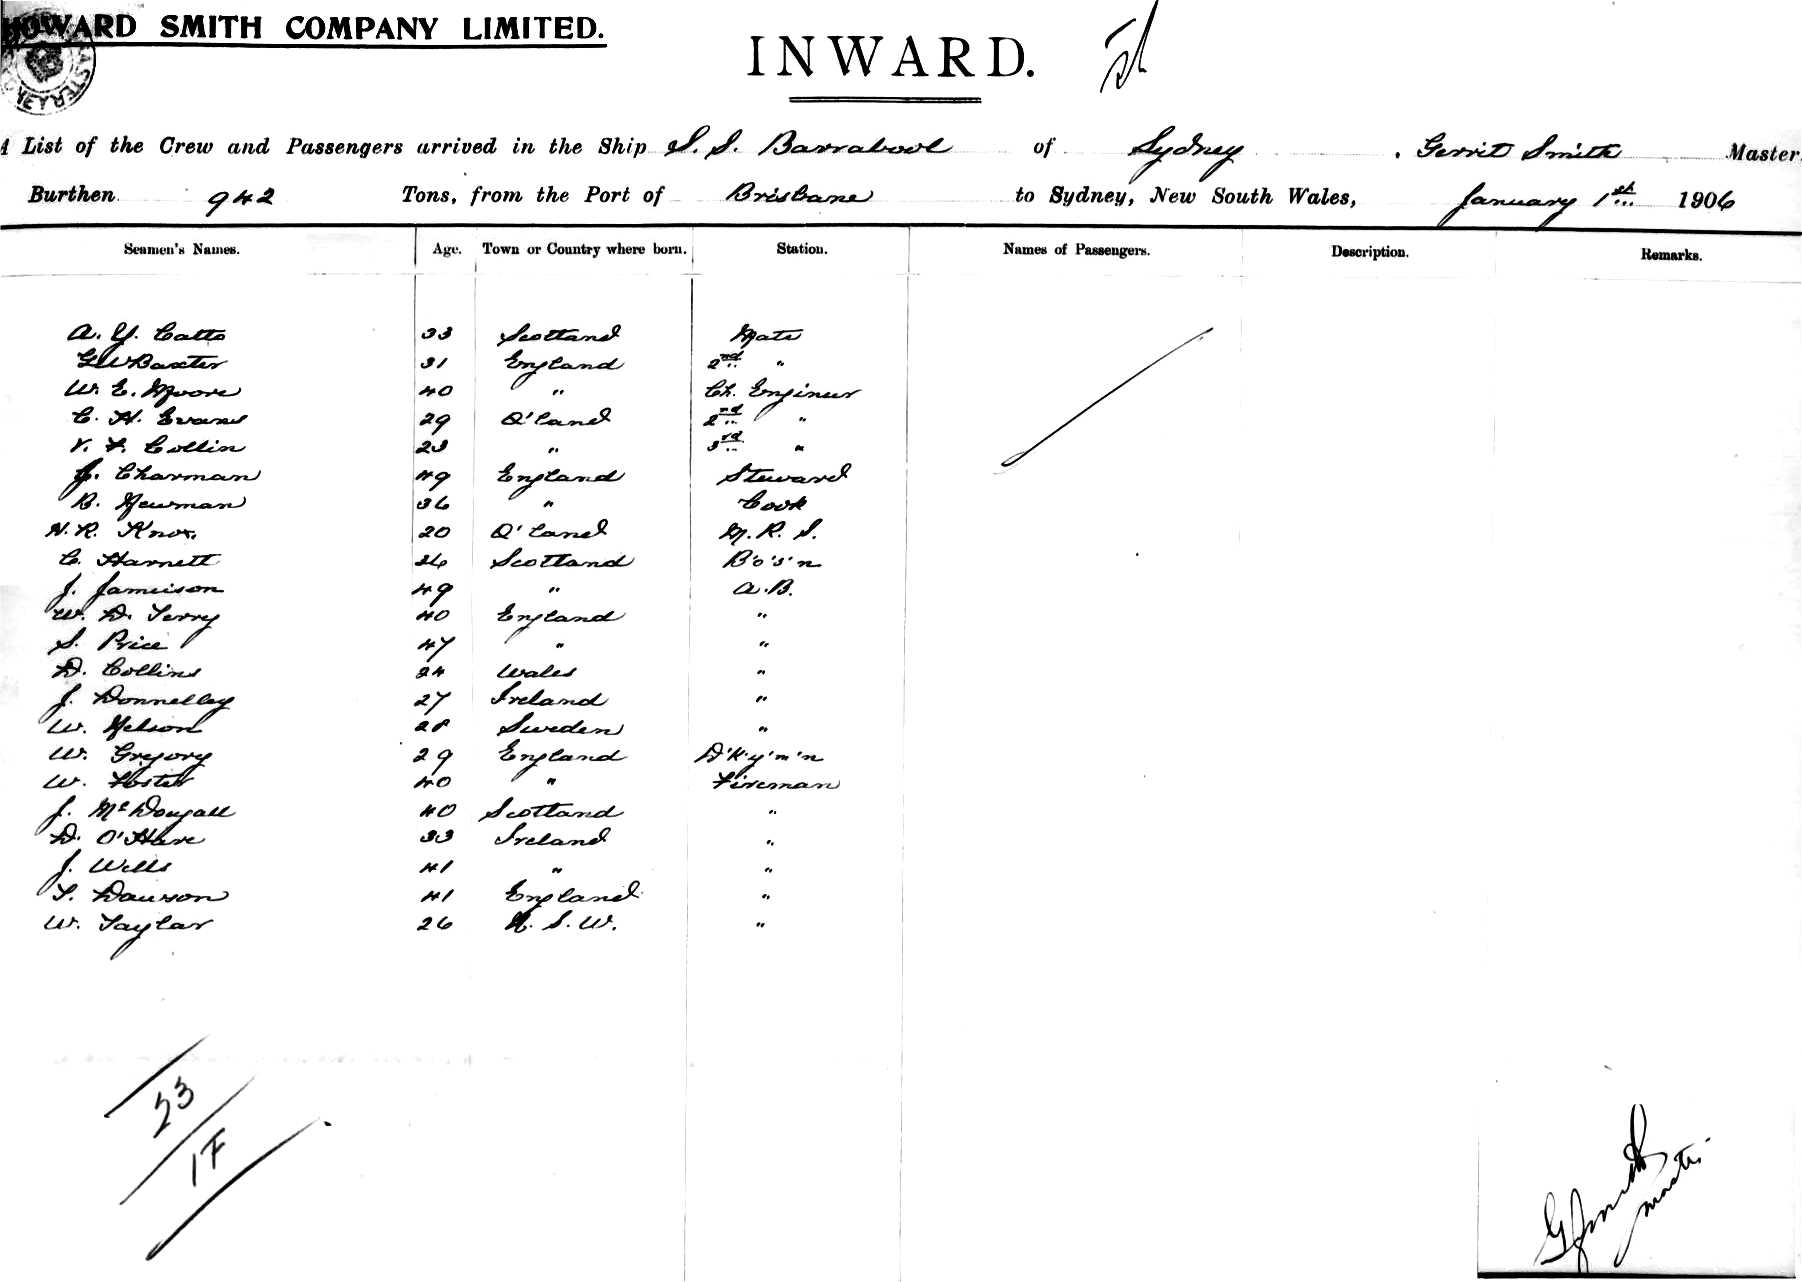 HOWARD SMITH COMPANY LIMITED.
INWARD.
A List of the Crew and Passengers arrived in the Ship S. S. Barrabool of Sydney, Gerrit Smith Master
Burthen 942 Tons, from the Port of Brisbane to Sydney, New South Wales, January 1st 1906
Seamen's Names. Age. Town or Country where born. Station. Names of Passengers. Description. Remarks.
A. Y. Catto 33 Scotland Mate
G W Baxter 31 England 2nd "
W. E. Moore 40 " Ch. Engineer
C. H. Evans 29 Q'land 2nd "
V. F. Collin 23 " 3rd "
J. Charman 49 England Steward
B. Newman 36 " Cook
H. R. Knox. 20 Q'land M. R. S.
C. Harnett 36 Scotland B'o's'n
J. Jameison 49 " A.B.
W. D. Terry 40 England "
S. Price 47 " "
D. Collins 24 Wales "
J. Donnelley 27 Ireland "
W. Nelson 28 Sweden "
W. Gregory 29 England D'k'y'm'n
W. Foster 40 " Fireman
J. McDougall 40 Scotland "
D. O'Hare 33 Ireland "
J. Wells 41 " "
T. Dawson 41 England "
W. Taylor 26 N. S. W. "
23
1F
G Smith
master